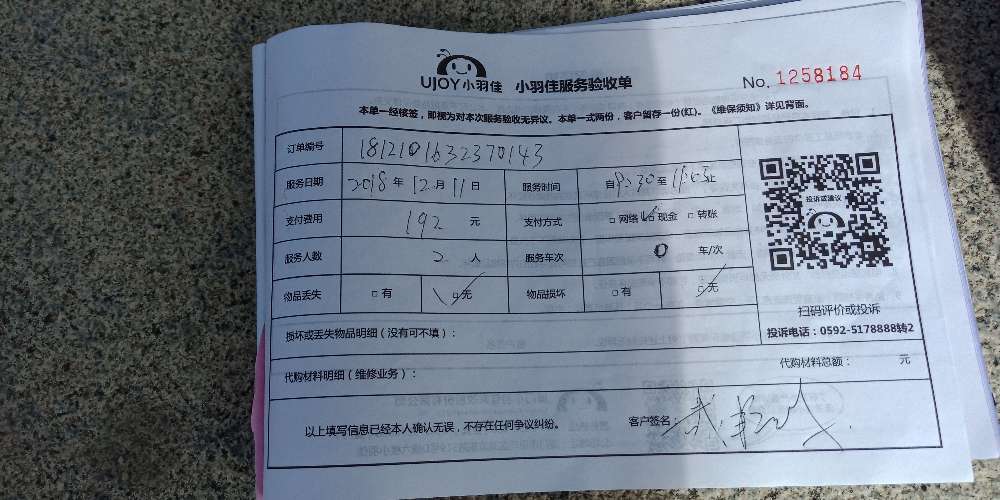 UJOY小羽佳 小羽佳服务验收单 No. 1258184
本单一经核签，即视为对本次服务验收无异议。本单一式两份，客户留存一份(红)。《维保须知》详见背面。
订单编号 1812101632370143
服务日期 2018年12月11日 服务时间 自9:30至11:03止
支付费用 192 元 支付方式 □网络 □现金 □转账
服务人数 2 人 服务车次 0 车/次
物品丢失 □有 □无 物品损坏 □有 □无
投诉或建议
扫码评价或投诉
投诉电话：0592-5178888转2
损坏或丢失物品明细（没有可不填）：
代购材料明细（维修业务）： 代购材料总额： 元
以上填写信息已经本人确认无误，不存在任何争议纠纷。 客户签名：